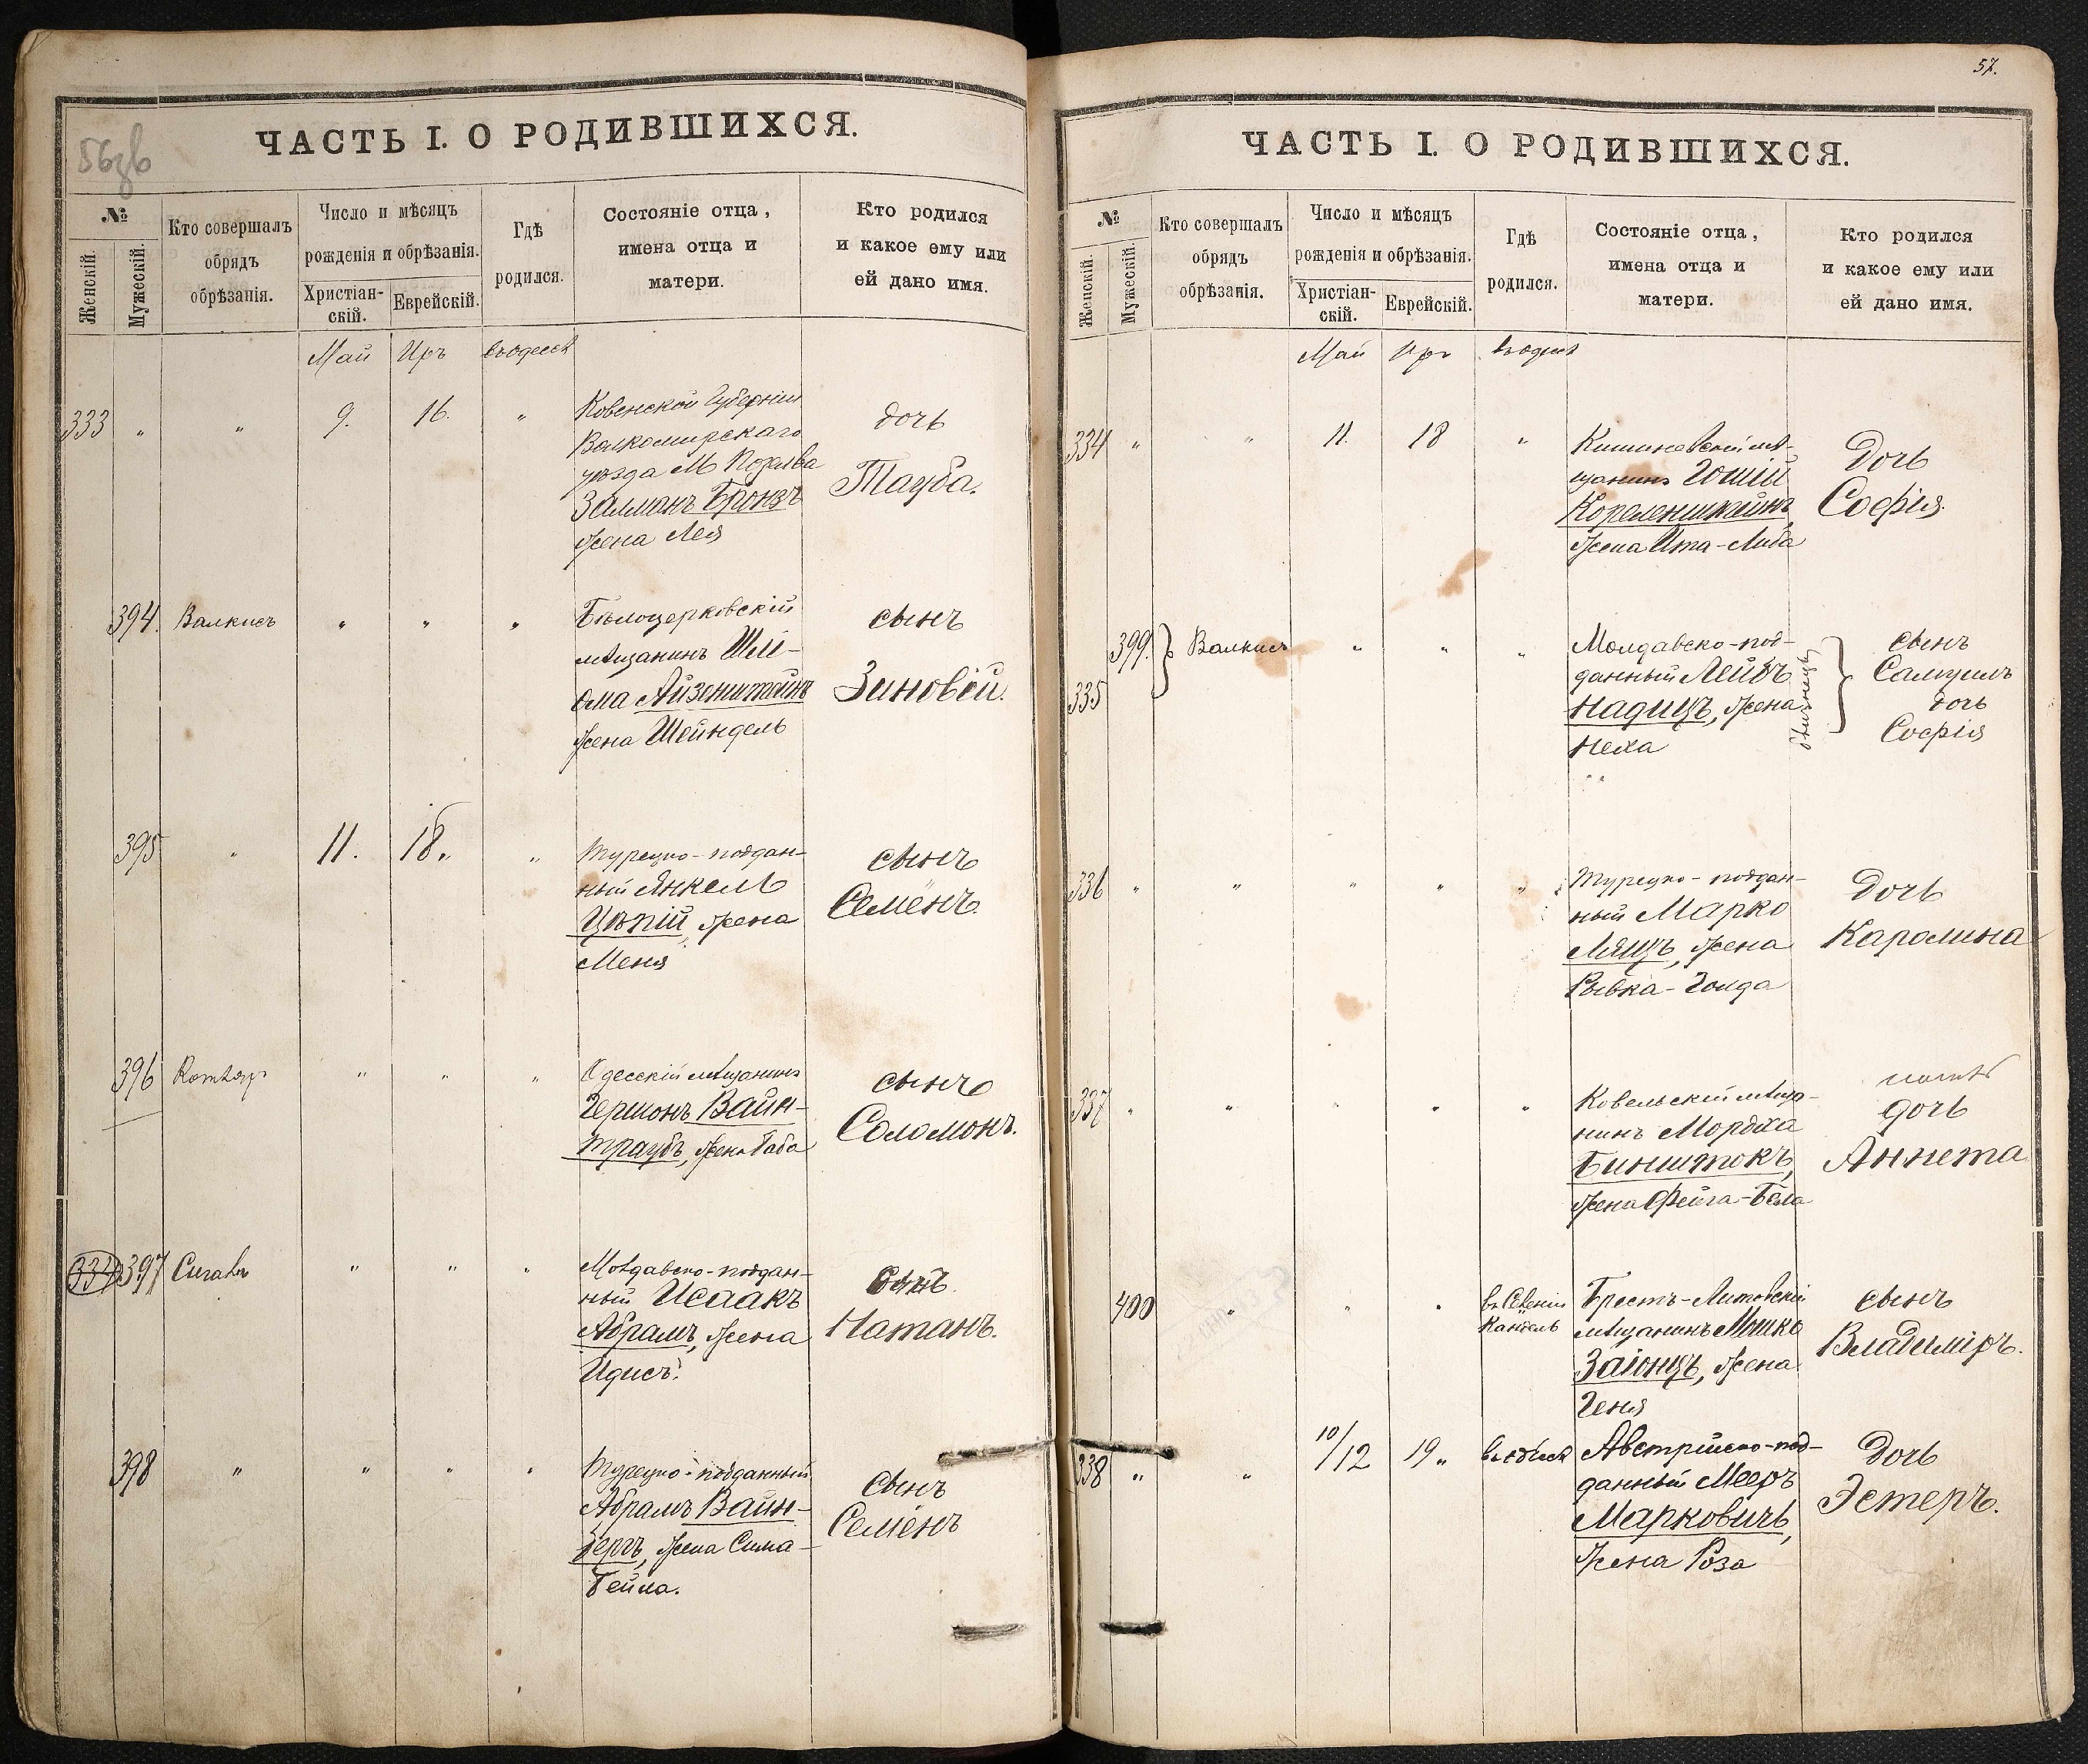 56зв
ЧАСТЬ I. О РОДИВШИХСЯ.
№
Женскій.
Мужескій.
Кто совершалъ
обрядъ
обрѣзанія.
Число и мѣсяцъ
рожденія и обрѣзанія.
Христіан-
скій.
Еврейскій.
Гдѣ
родился.
Состояніе отца,
имена отца и
матери.
Кто родился
и какое ему или
ей дано имя.
Май Иръ въ Одессѣ
333 " " 9. 16. "
Ковенской Губерніи
Вилкомирскаго
уѣзда М.
Залманъ Бронзъ
жена Лея
дочь
Тауба.
394. Валкисъ " " "
Бѣлоцерковскій
мѣщанинъ Шлі-
ома Айзенштейнъ
жена Шейндель
сынъ
Зиновій.
395 " 11. 18. "
Турецко-поддан-
ный Янкель
Цыпій, жена
Меня
сынъ
Семенъ.
396 " " "
Одесскій мѣщанинъ
Гершонъ Вайн-
траубъ, жена Габа
сынъ
Соломонъ.
334 397 " " "
Молдавско-поддан-
ный Исаакъ
Абрамъ, жена
Идисъ.
Сынъ.
Натанъ.
398 " " " "
Турецко-подданный
Абрамъ Вайн-
бергъ, жена Сима-
Бейла.
Сынъ
Семенъ
57.
ЧАСТЬ I. О РОДИВШИХСЯ.
№
Женскій.
Мужескій.
Кто совершалъ
обрядъ
обрѣзанія.
Число и мѣсяцъ
рожденія и обрѣзанія.
Христіан-
скій.
Еврейскій.
Гдѣ
родился.
Состояніе отца,
имена отца и
матери.
Кто родился
и какое ему или
ей дано имя.
Май Иръ въ Одессѣ
334 " " 11. 18 "
Кишиневскій мѣ-
щанинъ
Кореленштейнъ,
жена Ита-Либа
Дочь
Софія.
399. Валкисъ " " "
335
Молдавско-под-
данный Лейбъ
Надицъ, жена
Неха
близнецы
сынъ
Самуилъ
дочь
Софія
336 " " " " "
Турецко-поддан-
ный Марко
Ляицъ, жена
Рывка-Голда
Дочь
Каролина
337 " " " "
Ковельскій мѣща-
нинъ Мордха
Бинштокъ,
жена Фейга-Бела
дочь
Аннета
400 " " " въ Севеніи
Кандель
Брестъ-Литовскій
мѣщанинъ Мошко
Заіонцъ, жена
Геня
сынъ
Владиміръ.
338 " " 10/12 19 " въ Одессѣ
Австрійско-под-
данный Мееръ
Марковичъ,
жена Роза
Дочь
Эстеръ.